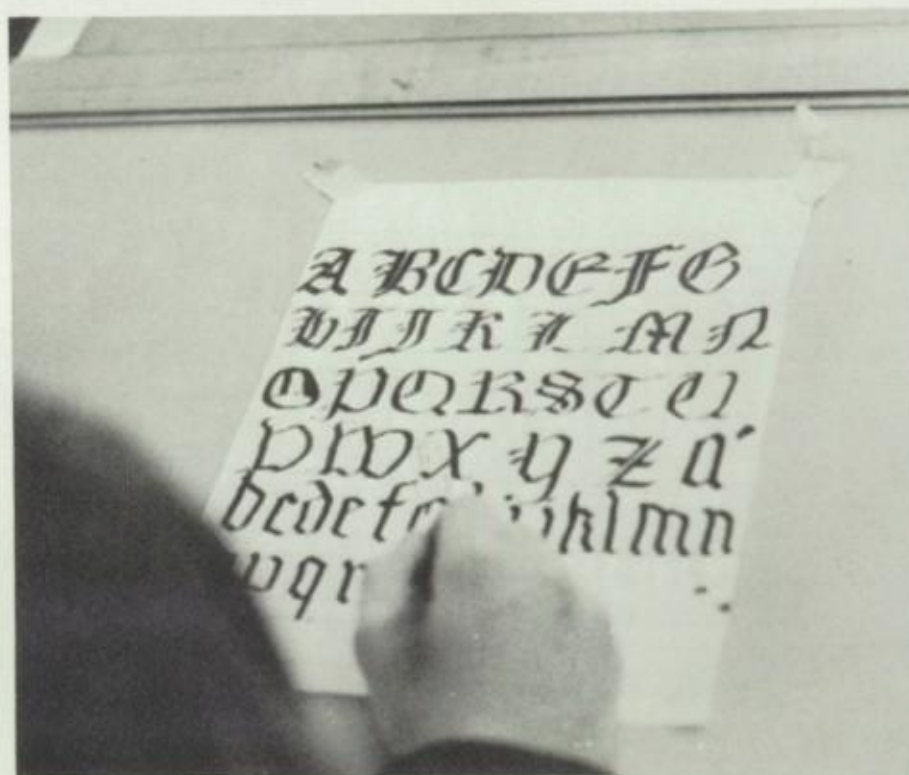 A B C D E F G
H I J K L M N
O P Q R S T U
V W X Y Z a
b c d e f g i j k l m n
p q r